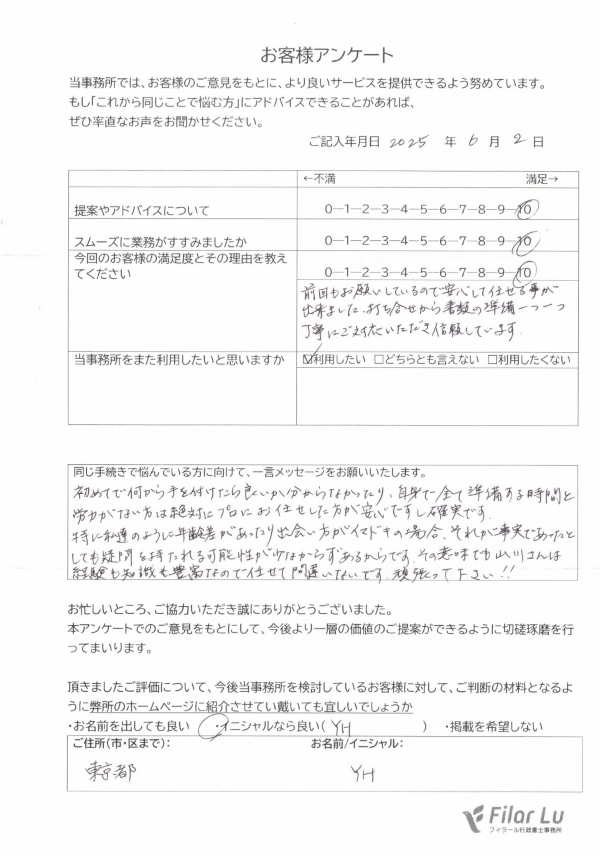 お客様アンケート
当事務所では、お客様のご意見をもとに、より良いサービスを提供できるよう努めています。
もし「これから同じことで悩む方」にアドバイスできることがあれば、
ぜひ率直なお声をお聞かせください。
ご記入年月日 2025 年 6 月 2 日
←不満 満足→
提案やアドバイスについて 0-1-2-3-4-5-6-7-8-9-10
スムーズに業務がすすみましたか 0-1-2-3-4-5-6-7-8-9-10
今回のお客様の満足度とその理由を教え
てください
0-1-2-3-4-5-6-7-8-9-10
前回もお願いしているので安心して任せる事が
出来ました。打ち合せから書類の準備一つ一つ
丁寧にご対応いただき信頼しています。
当事務所をまた利用したいと思いますか ☑利用したい □どちらとも言えない □利用したくない
同じ手続きで悩んでいる方に向けて、一言メッセージをお願いいたします。
初めてで何から手を付けたら良いか分からなかったり、自身で全て準備する時間と
労力がない方は絶対にプロにお任せした方が安心ですし確実です。
特に私達のように年齢差があったり出会い方がイマドキの場合、それが事実であったと
しても疑問を持たれる可能性が少なからずあるからです。その意味でも山川さんは
経験も知識も豊富なので任せて間違いないです。頑張って下さい!!
お忙しいところ、ご協力いただき誠にありがとうございました。
本アンケートでのご意見をもとにして、今後より一層の価値のご提案ができるように切磋琢磨を行
ってまいります。
頂きましたご評価について、今後当事務所を検討しているお客様に対して、ご判断の材料となるよ
うに弊所のホームページに紹介させてい戴いても宜しいでしょうか
・お名前を出しても良い ・イニシャルなら良い( YH ) ・掲載を希望しない
ご住所(市・区まで): お名前/イニシャル:
東京都 YH
Filar Lu
フィラール行政書士事務所